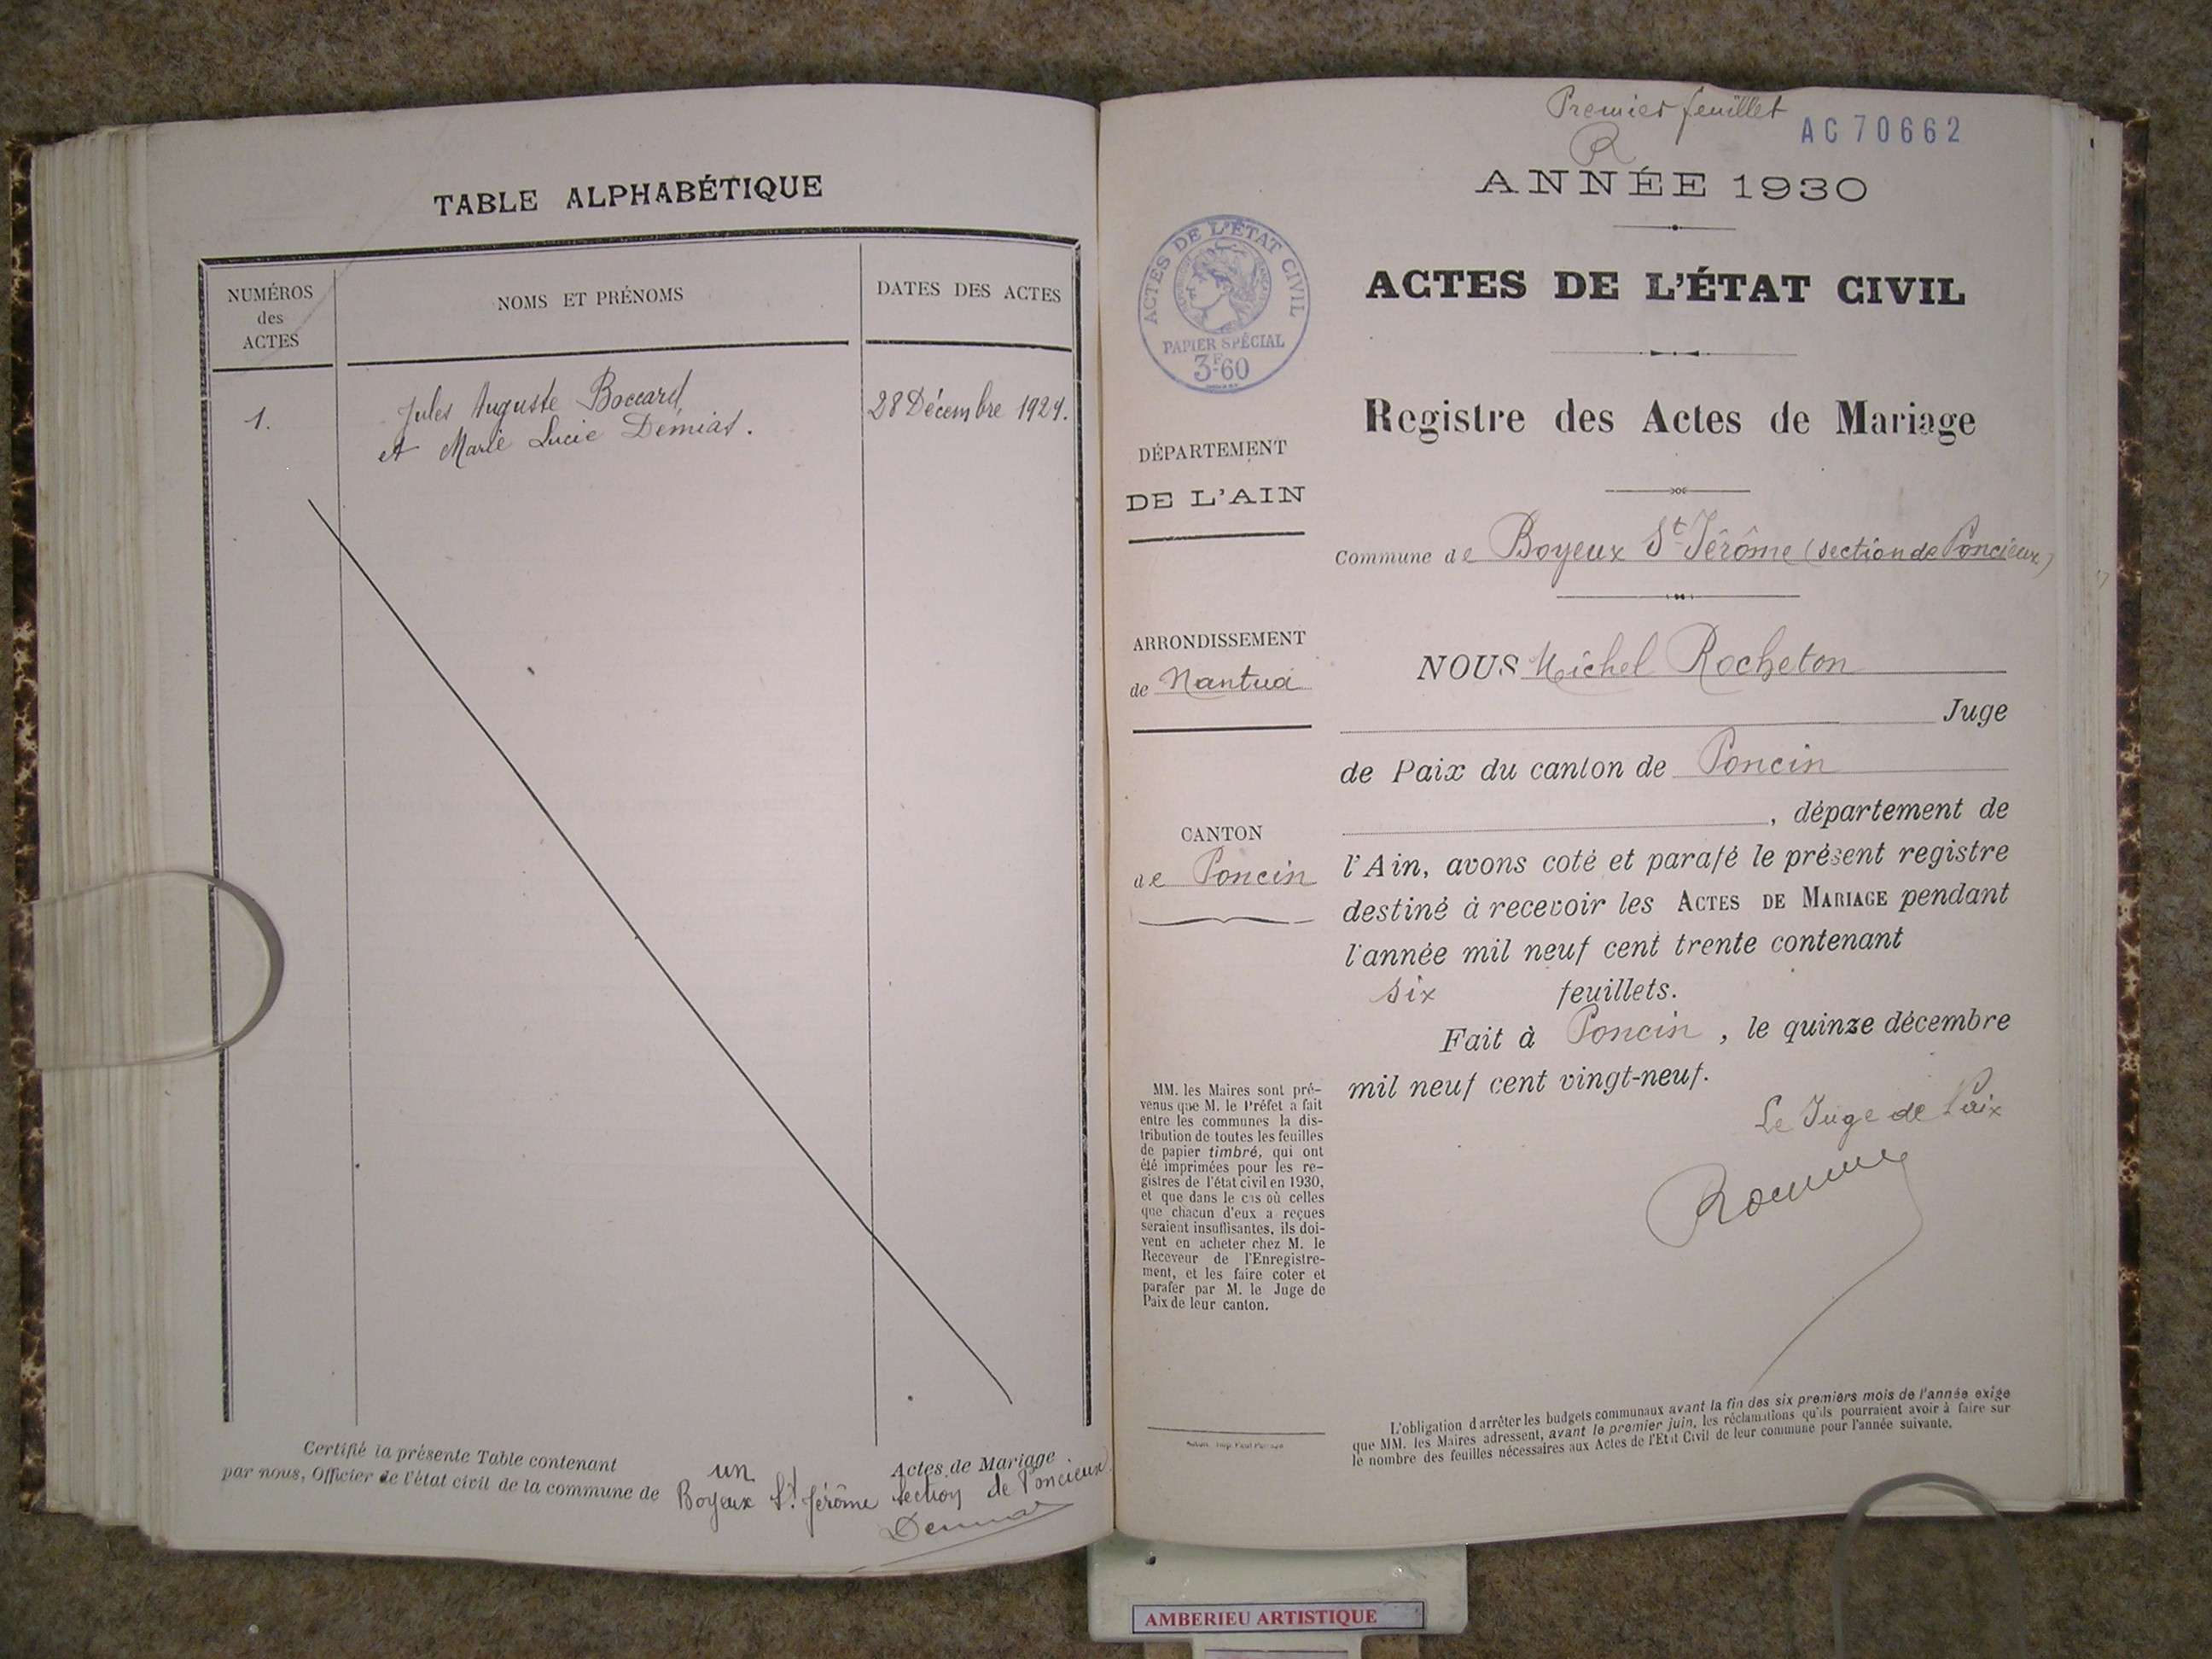 TABLE ALPHABÉTIQUE
NUMÉROS
des
ACTES
NOMS ET PRÉNOMS
DATES DES ACTES
1.
Jules Auguste Boccard
et Marie Lucie Demias.
28 Décembre 1929.
Certifié la présente Table contenant un Actes de Mariage
par nous, Officier de l'état civil de la commune de Boyeux St Jérôme section de Poncieux
Premier feuillet
AC 70662
R
ANNÉE 1930
ACTES DE L'ÉTAT CIVIL
PAPIER SPÉCIAL
3F60
ACTES DE L'ÉTAT CIVIL
Registre des Actes de Mariage
DÉPARTEMENT
DE L'AIN
Commune de Boyeux St Jérôme (section de Poncieux)
ARRONDISSEMENT
de Nantua
CANTON
de Poncin
NOUS Michel Rocheton
Juge
de Paix du canton de Poncin
, département de
l'Ain, avons coté et parafé le présent registre
destiné à recevoir les ACTES DE MARIAGE pendant
l'année mil neuf cent trente contenant
six feuillets.
Fait à Poncin, le quinze décembre
mil neuf cent vingt-neuf.
Le Juge de Paix
MM. les Maires sont pré-
venus que M. le Préfet a fait
entre les communes la dis-
tribution de toutes les feuilles
de papier timbré, qui ont
été imprimées pour les re-
gistres de l'état civil en 1930,
et que dans le cas où celles
que chacun d'eux a reçues
seraient insuffisantes, ils doi-
vent en acheter chez M. le
Receveur de l'Enregistre-
ment, et les faire coter et
parafer par M. le Juge de
Paix de leur canton.
L'obligation d'arrêter les budgets communaux avant la fin des six premiers mois de l'année exige
que MM. les Maires adressent, avant le premier juin, les réclamations qu'ils pourraient avoir à faire sur
le nombre des feuilles nécessaires aux Actes de l'Etat Civil de leur commune pour l'année suivante.
AMBERIEU ARTISTIQUE